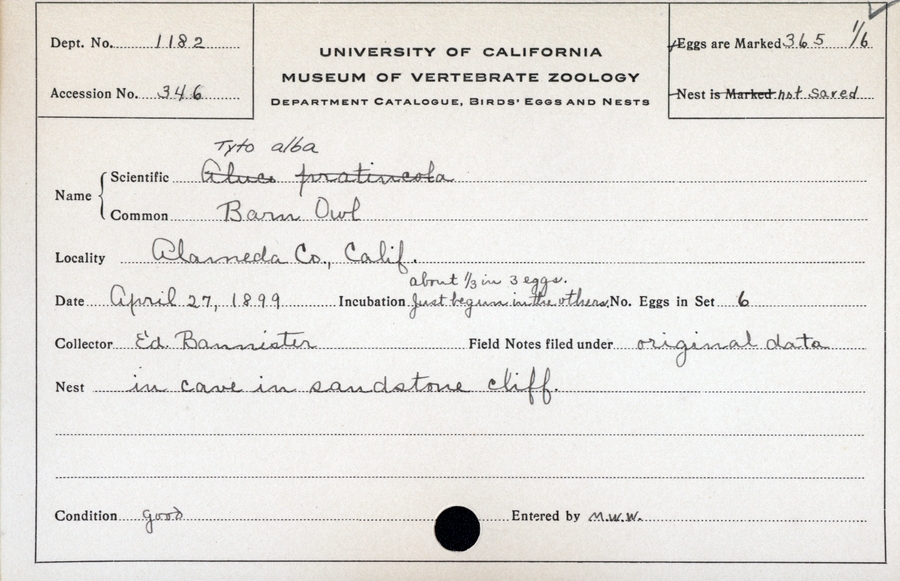 Dept. No. 1182
Accession No. 346
UNIVERSITY OF CALIFORNIA
MUSEUM OF VERTEBRATE ZOOLOGY
DEPARTMENT CATALOGUE, BIRDS' EGGS AND NESTS
Eggs are Marked 365 1/6
Nest is Marked not saved
Tyto alba
Name
Scientific Aluco pratincola
Common Barn Owl
Locality Alameda Co., Calif.
about 1/3 in 3 eggs.
Date April 27, 1899 Incubation Just begun in the others. No. Eggs in Set 6
Collector Ed. Bannister Field Notes filed under original data
Nest in cave in sandstone cliff.
Condition good Entered by M.W.W.